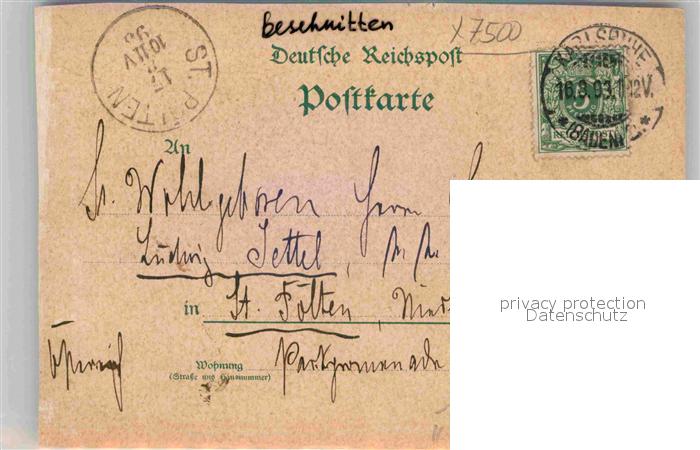 beschnitten
X7500
Deutsche Reichspost
Postkarte
ST. PÖLTEN
17
93
KARLSRUHE
16.8.93.
(BADEN)
An
Sr. Wohlgeboren Herrn
Ludwig Jettel,
in St. Pölten, Nied
Wohnung
(Straße und Hausnummer)
Parkpromenade
Österreich
privacy protection
Datenschutz